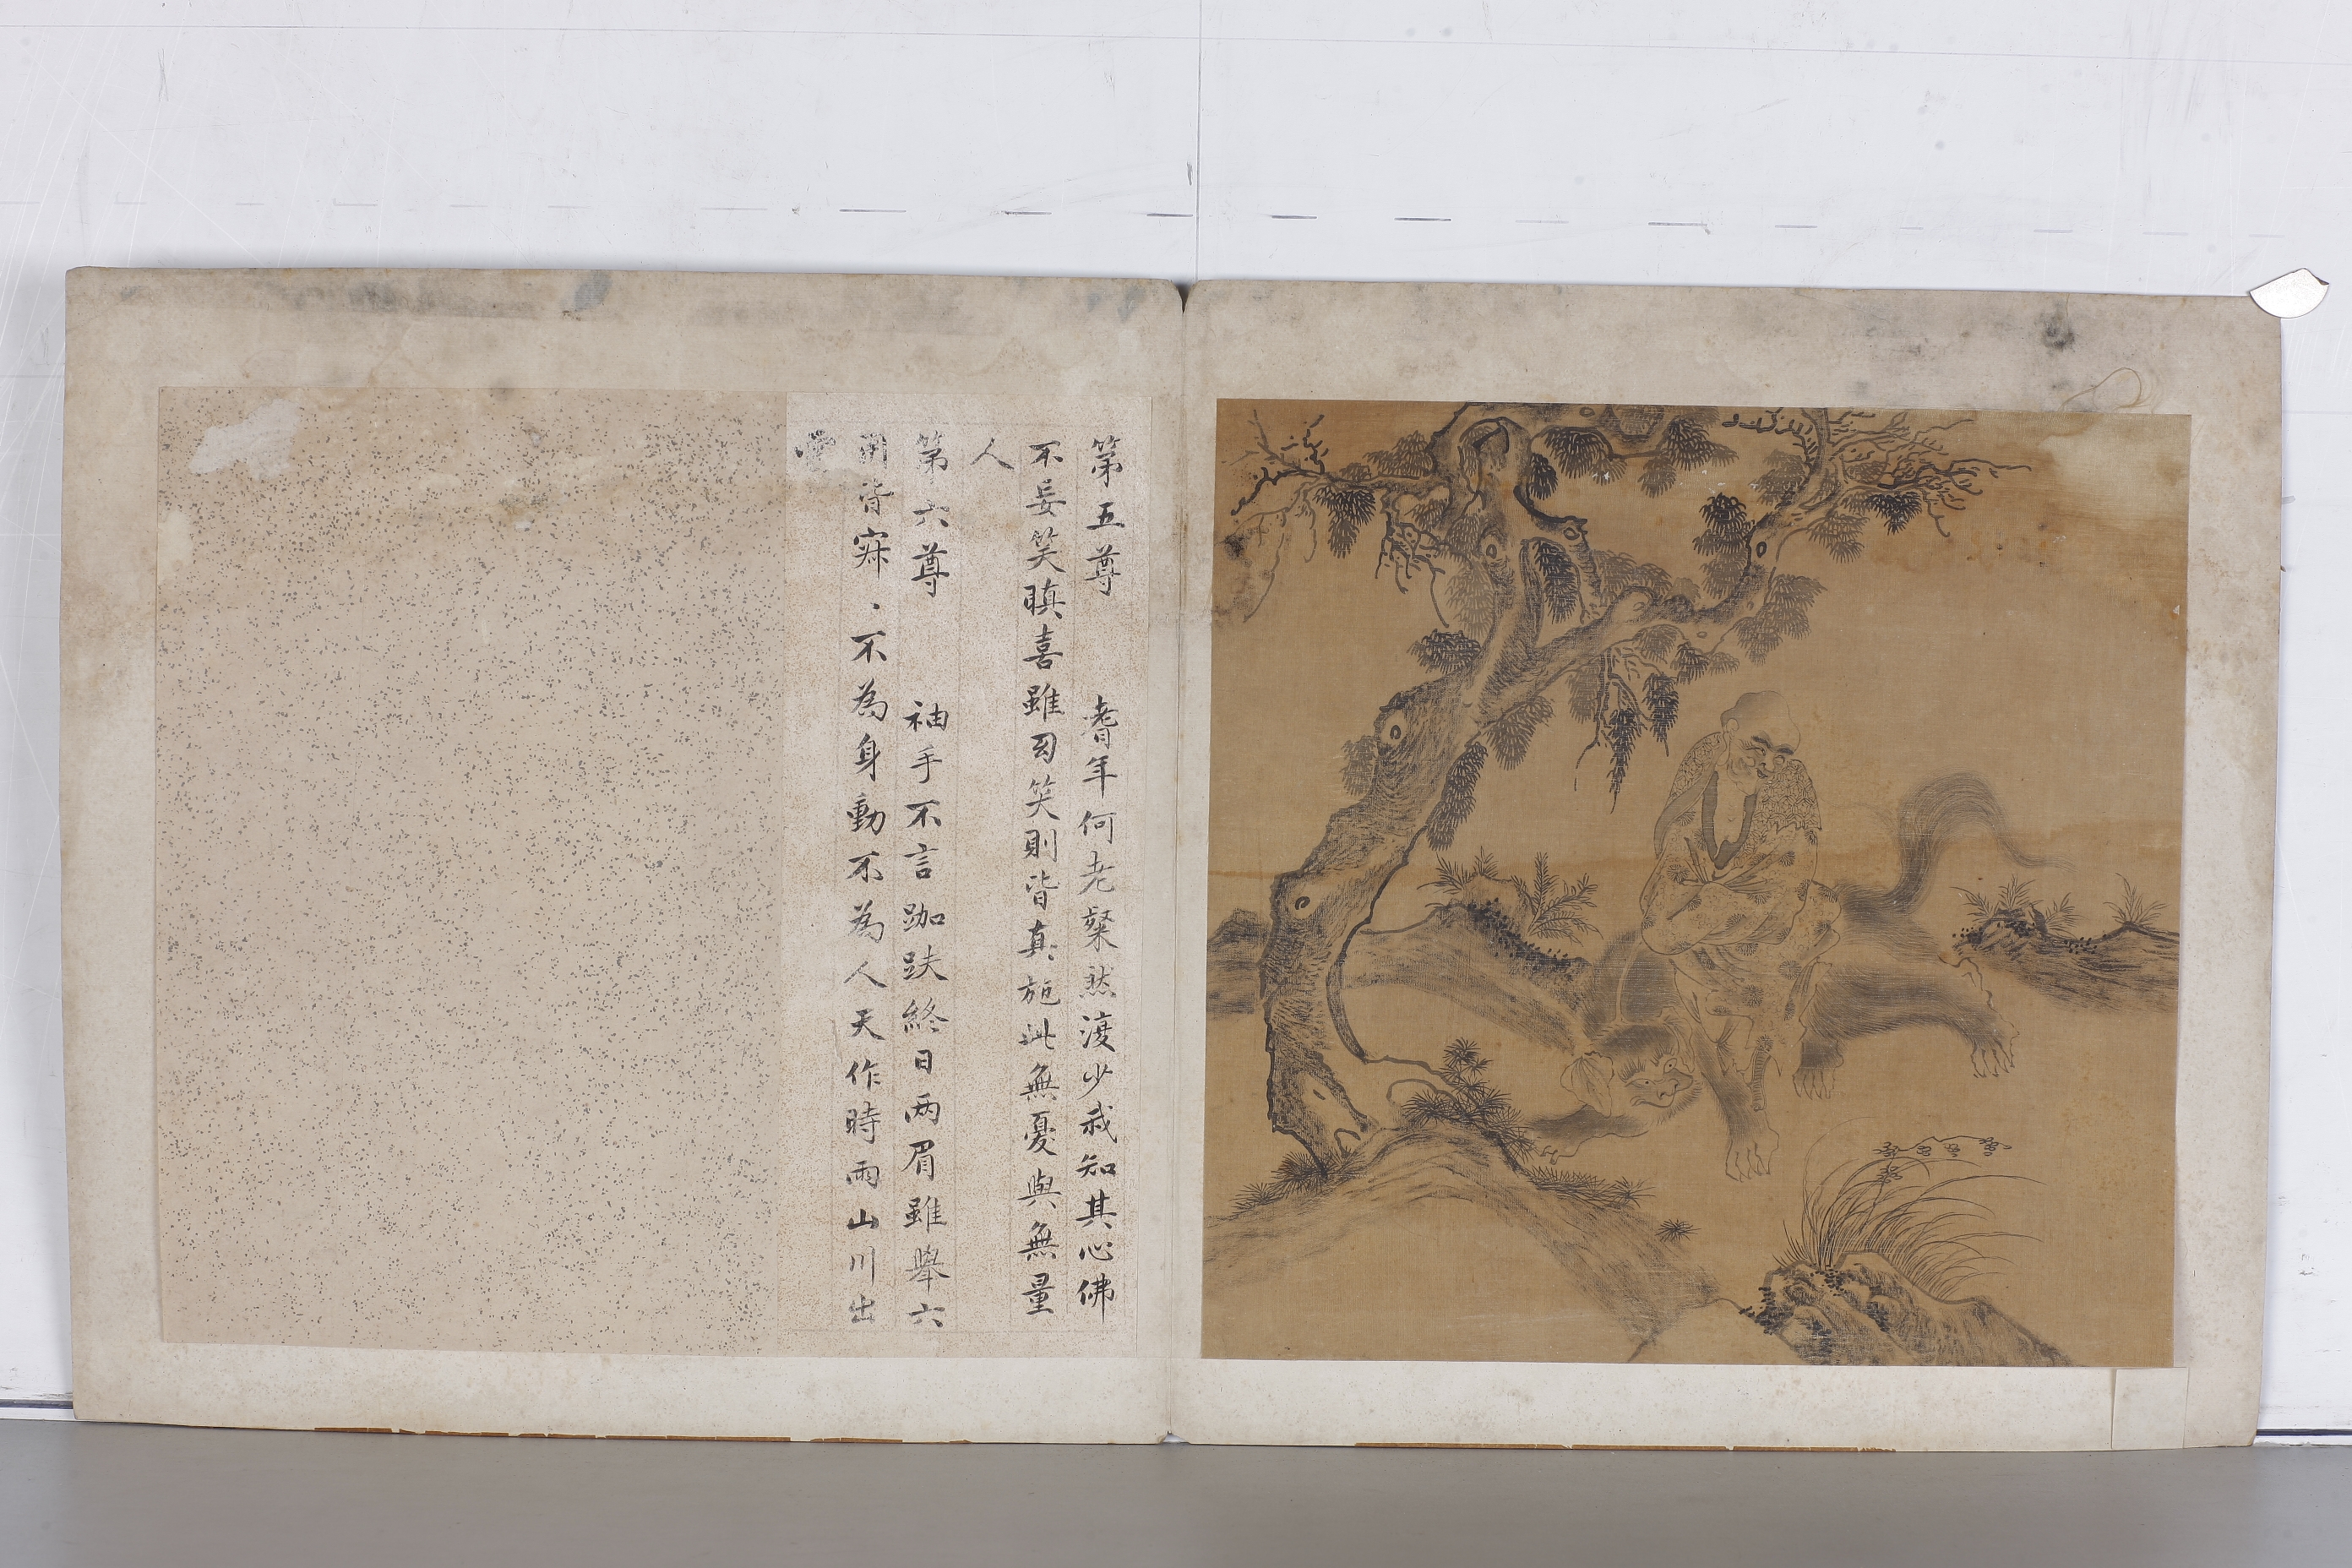 第五尊 耆年何老粲然渡少我知其心佛
不妄笑瞋喜雖幻笑則皆真施此無憂與無量
人
第六尊 袖手不言跏趺終日两眉雖舉六
用皆寂、不為身動不為人天作時雨山川出
雲